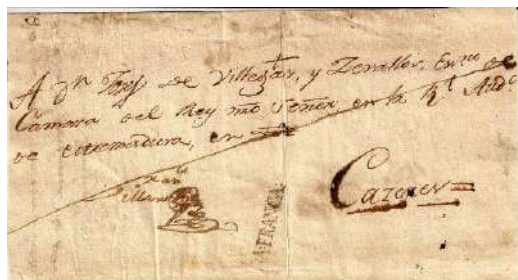 A Dn de Villegas, y Zevallos, Essno de
Camara del Rey nro Señor, en la Rl Audª
de Estremadura, en
FRANCA
Cazeres